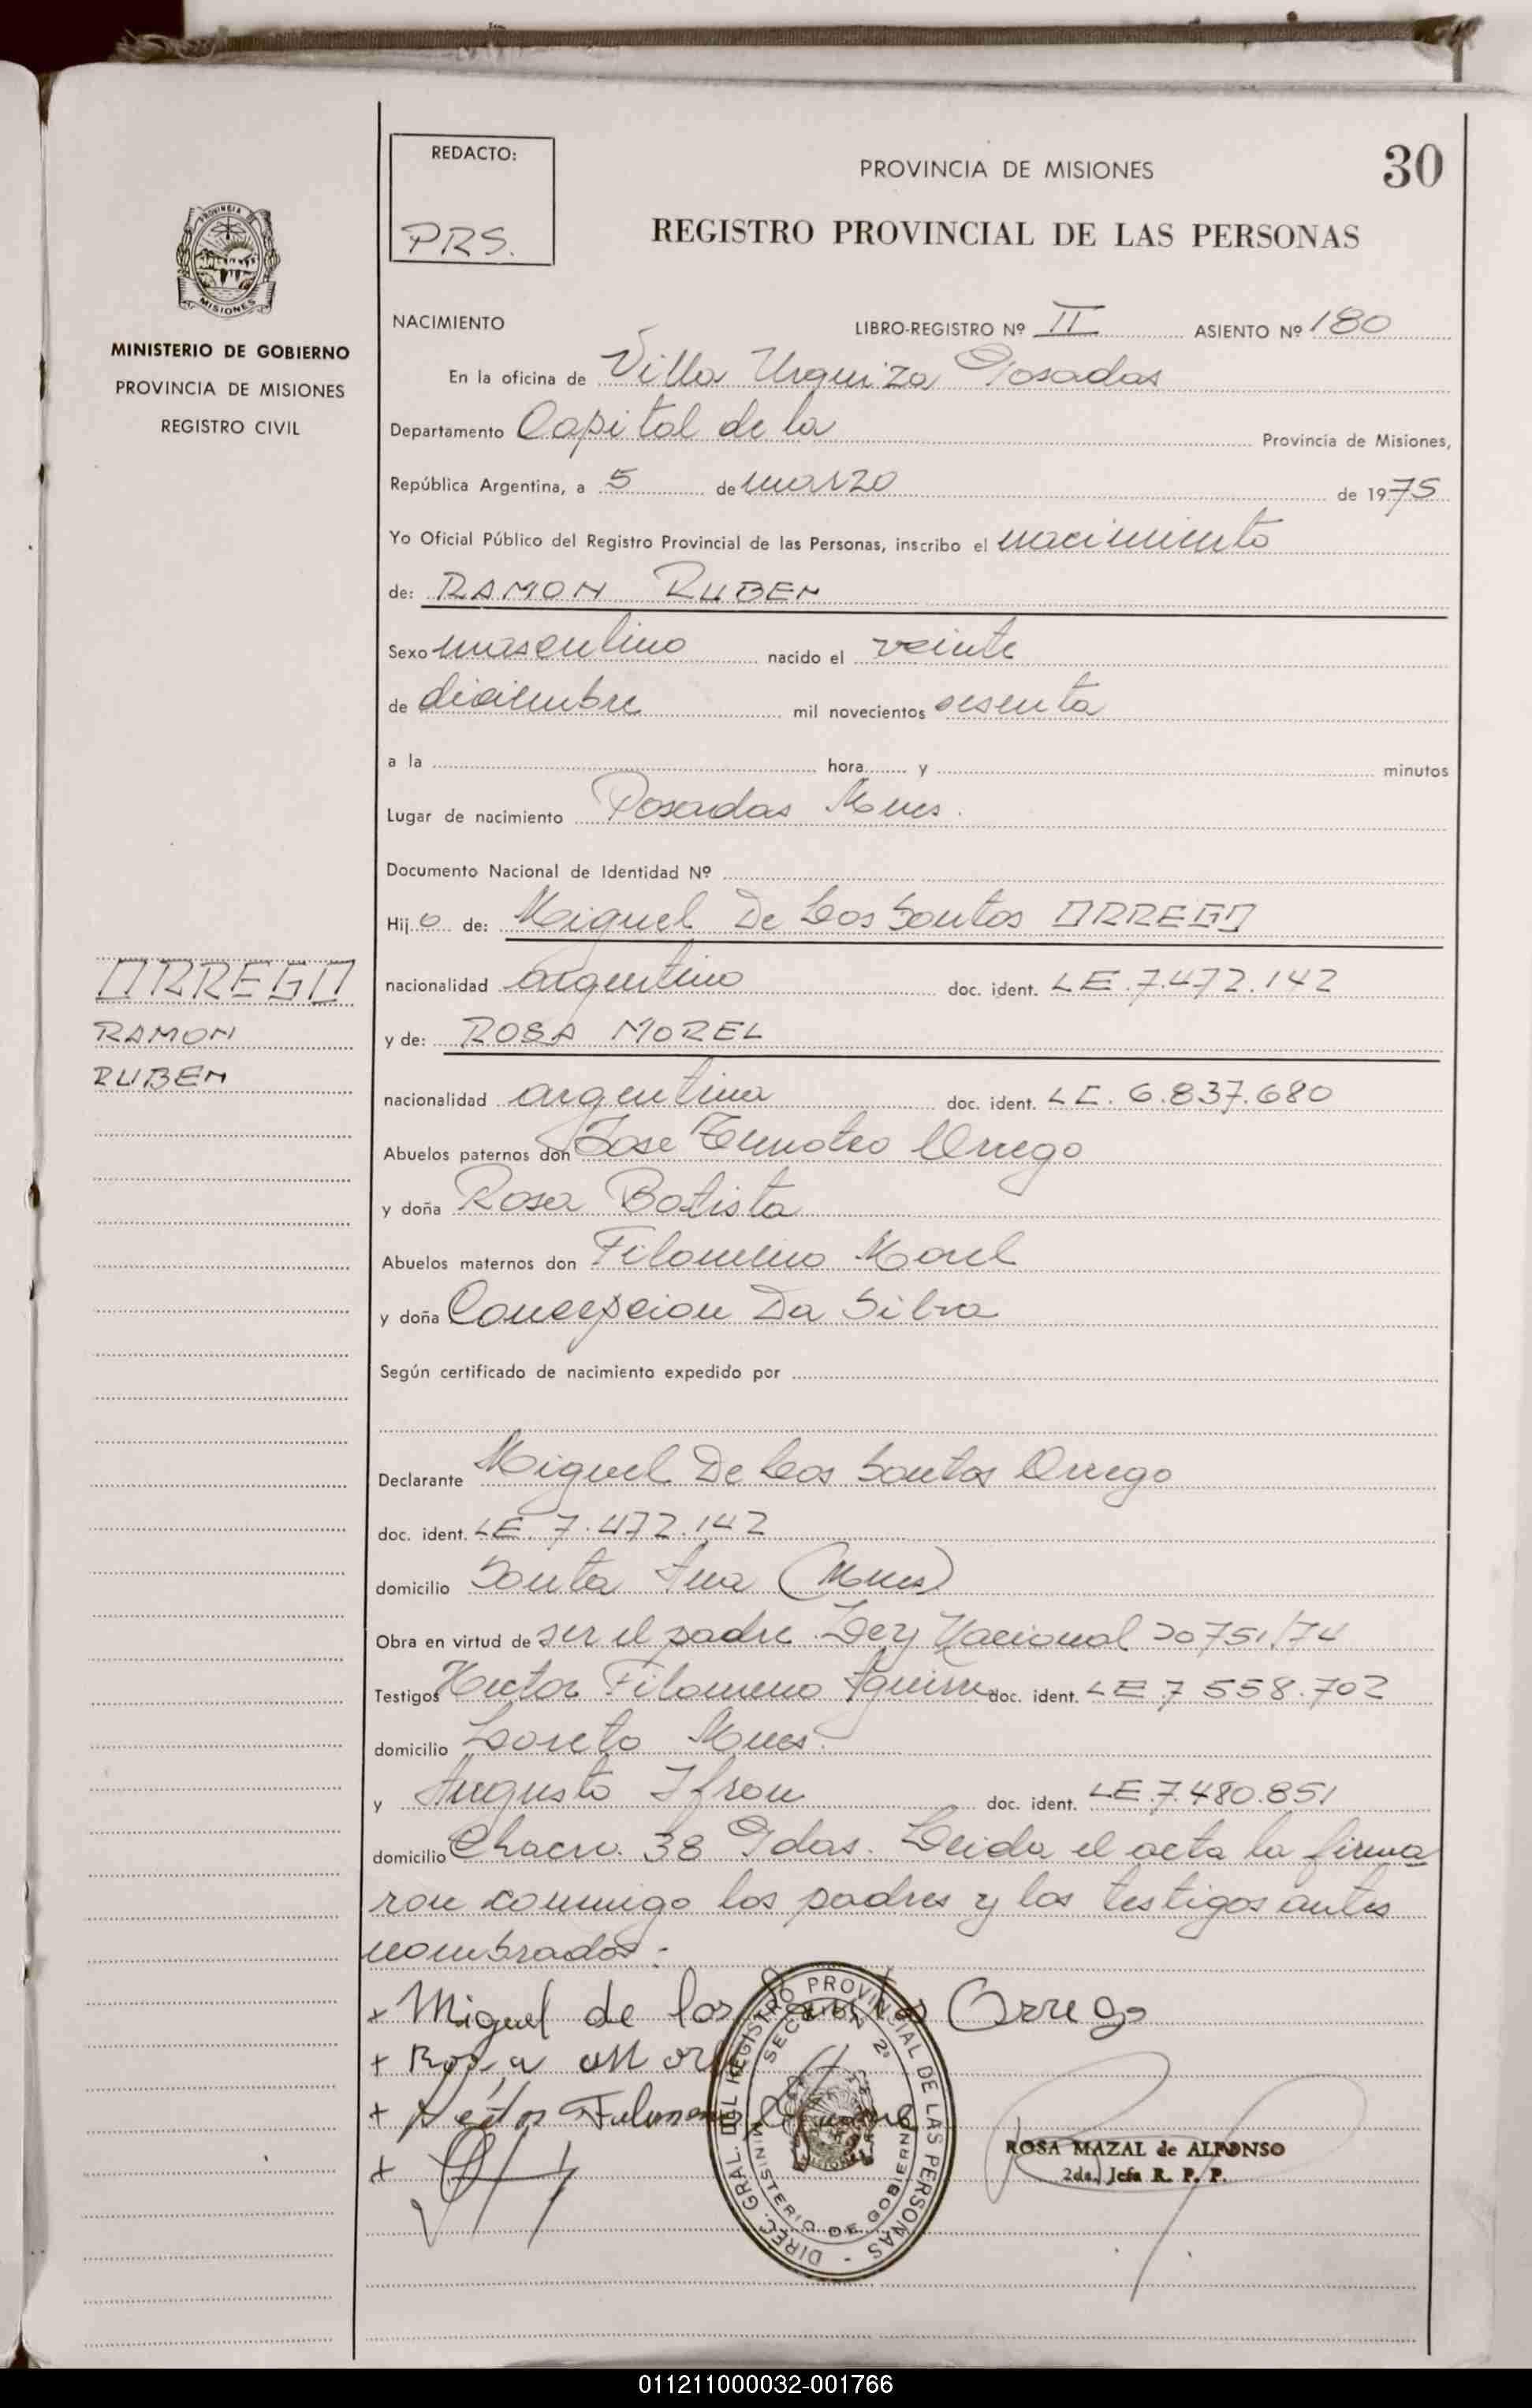 REDACTO:
PRS.
PROVINCIA DE MISIONES
30
REGISTRO PROVINCIAL DE LAS PERSONAS
MISIONES
MINISTERIO DE GOBIERNO
PROVINCIA DE MISIONES
REGISTRO CIVIL
NACIMIENTO LIBRO-REGISTRO Nº II ASIENTO Nº 180
En la oficina de Villa Urquiza Posadas
Departamento Capital de la Provincia de Misiones,
República Argentina, a 5 de marzo de 1975
Yo Oficial Público del Registro Provincial de las Personas, inscribo el nacimiento
de: RAMON RUBEN
Sexo masculino nacido el veinte
de diciembre mil novecientos sesenta
a la hora y minutos
Lugar de nacimiento Posadas Mnes.
Documento Nacional de Identidad Nº
Hijo de: Miguel De Los Santos ORREGO
ORREGO
RAMON
RUBEN
nacionalidad argentino doc. ident. LE.7.472.142
y de: ROSA MOREL
nacionalidad argentina doc. ident. LC. 6.837.680
Abuelos paternos don Jose Timoteo Orrego
y doña Rosa Batista
Abuelos maternos don Filomeno Morel
y doña Concepcion Da Silva
Según certificado de nacimiento expedido por
Declarante Miguel De Los Santos Orrego
doc. ident. LE. 7.472.142
domicilio Santa Ana (Mnes)
Obra en virtud de ser el padre Ley Nacional 20751/74
Testigos Hector Filomeno Aguirre doc. ident. LE 7 558.702
domicilio Loreto Mnes.
y Augusto Ifran doc. ident. LE.7.480.851
domicilio Chacra 38 Pdas. Leida el acta la firma
ron conmigo los padres y los testigos antes
nombrados.-
+ Miguel de los Santos Orrego
+ Rosa Morel
+ Hector Filomeno Aguirre
+
DIREC. GRAL. DEL REGISTRO PROVINCIAL DE LAS PERSONAS -
SECCION 2ª
MINISTERIO DE GOBIERNO
ROSA MAZAL de ALFONSO
2da. Jefa R. P. P.
011211000032-001766